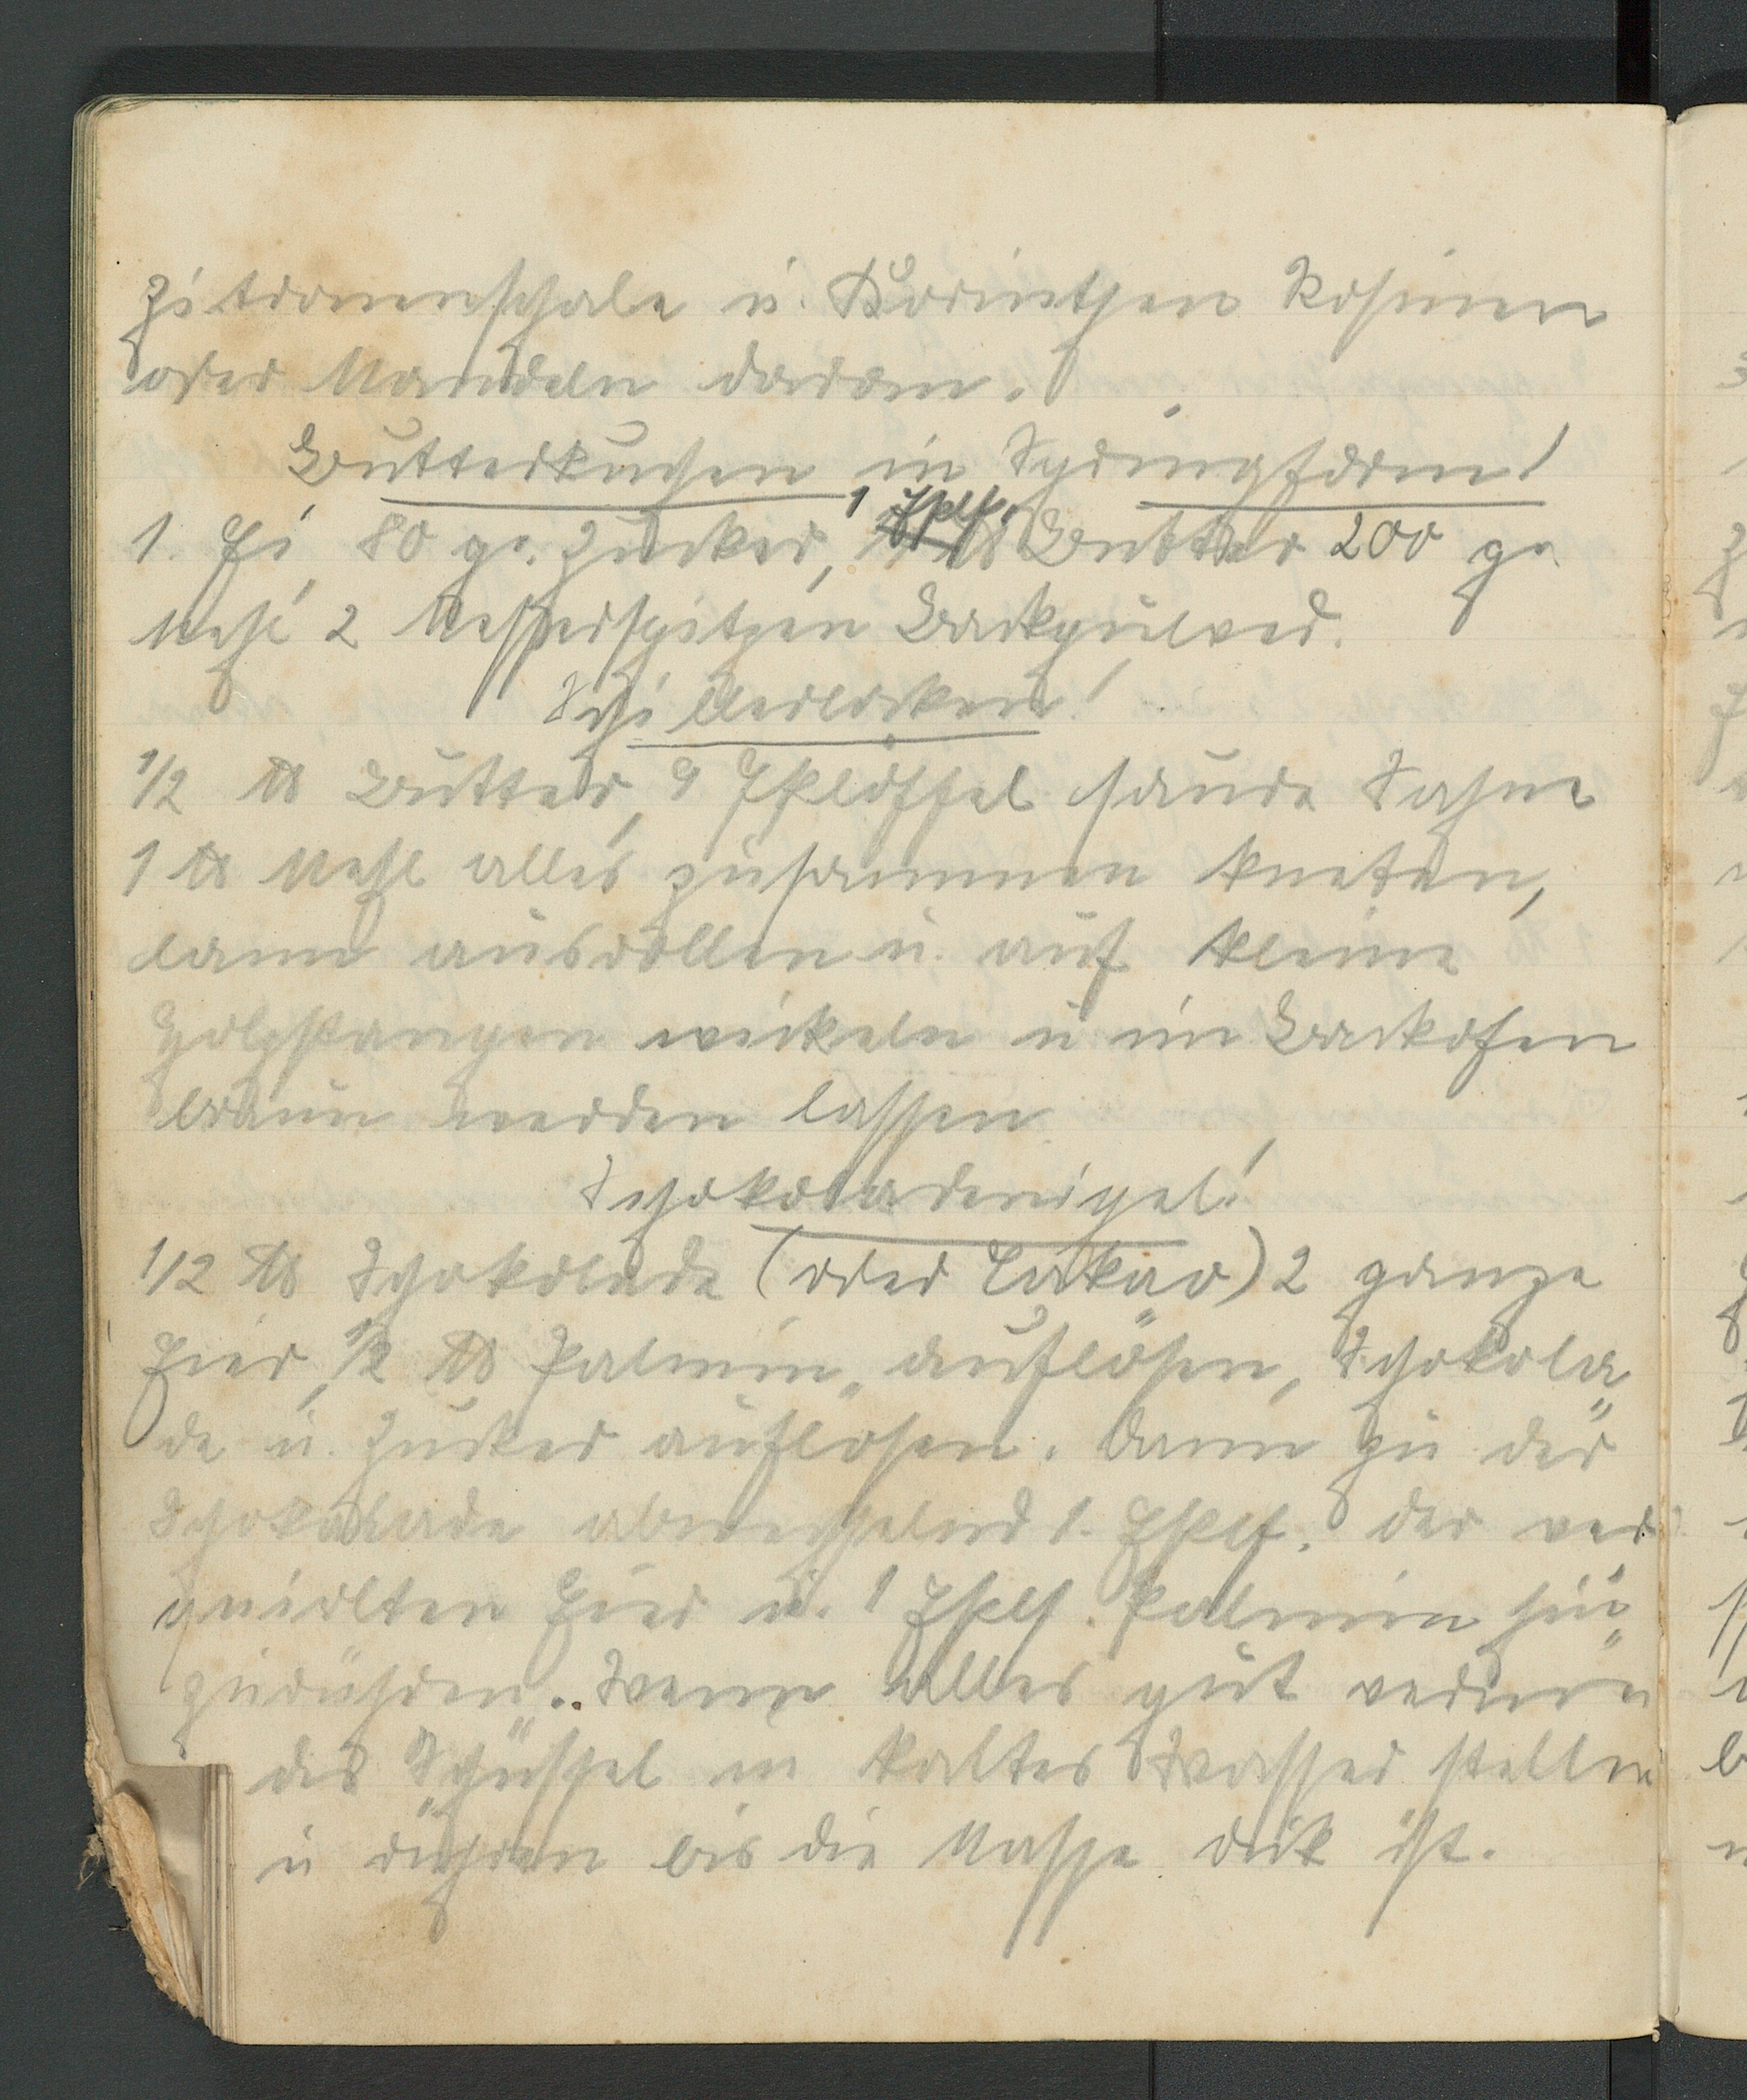 Zitronenschale u. Korinthen Rosinen
oder Mandeln daran.
Butterkuchen in Springform!
1. Ei, 80 gr. Zucker, 1 Eßlf. Butter 200 gr
Mehl 2 Messerspitzen Backpulver.
Schillerlocken!
1/2 ℔ Butter, 4 Eßlöffel saure Sahne
1 ℔ Mehl alles zusammen kneten,
dann ausrollen u. auf kleine
Holzstangen wickeln u im Backofen
braun werden lassen
Schokoladenigel!
1/2 ℔ Schokolade (oder Cakao) 2 ganze
Eier, 1/2 ℔ Palmin, auflösen, Schokola„
de u. Zucker auflösen. Dann zu der
Schokolade abwechselnd 1. Eßlf. der ver
quirlten Eier u. 1 Eßlf. Palmin hin„
zurühren. Wenn alles gut
des Schüssel in kaltes Wasser stellen
u rühren bis die Masse dick ist.